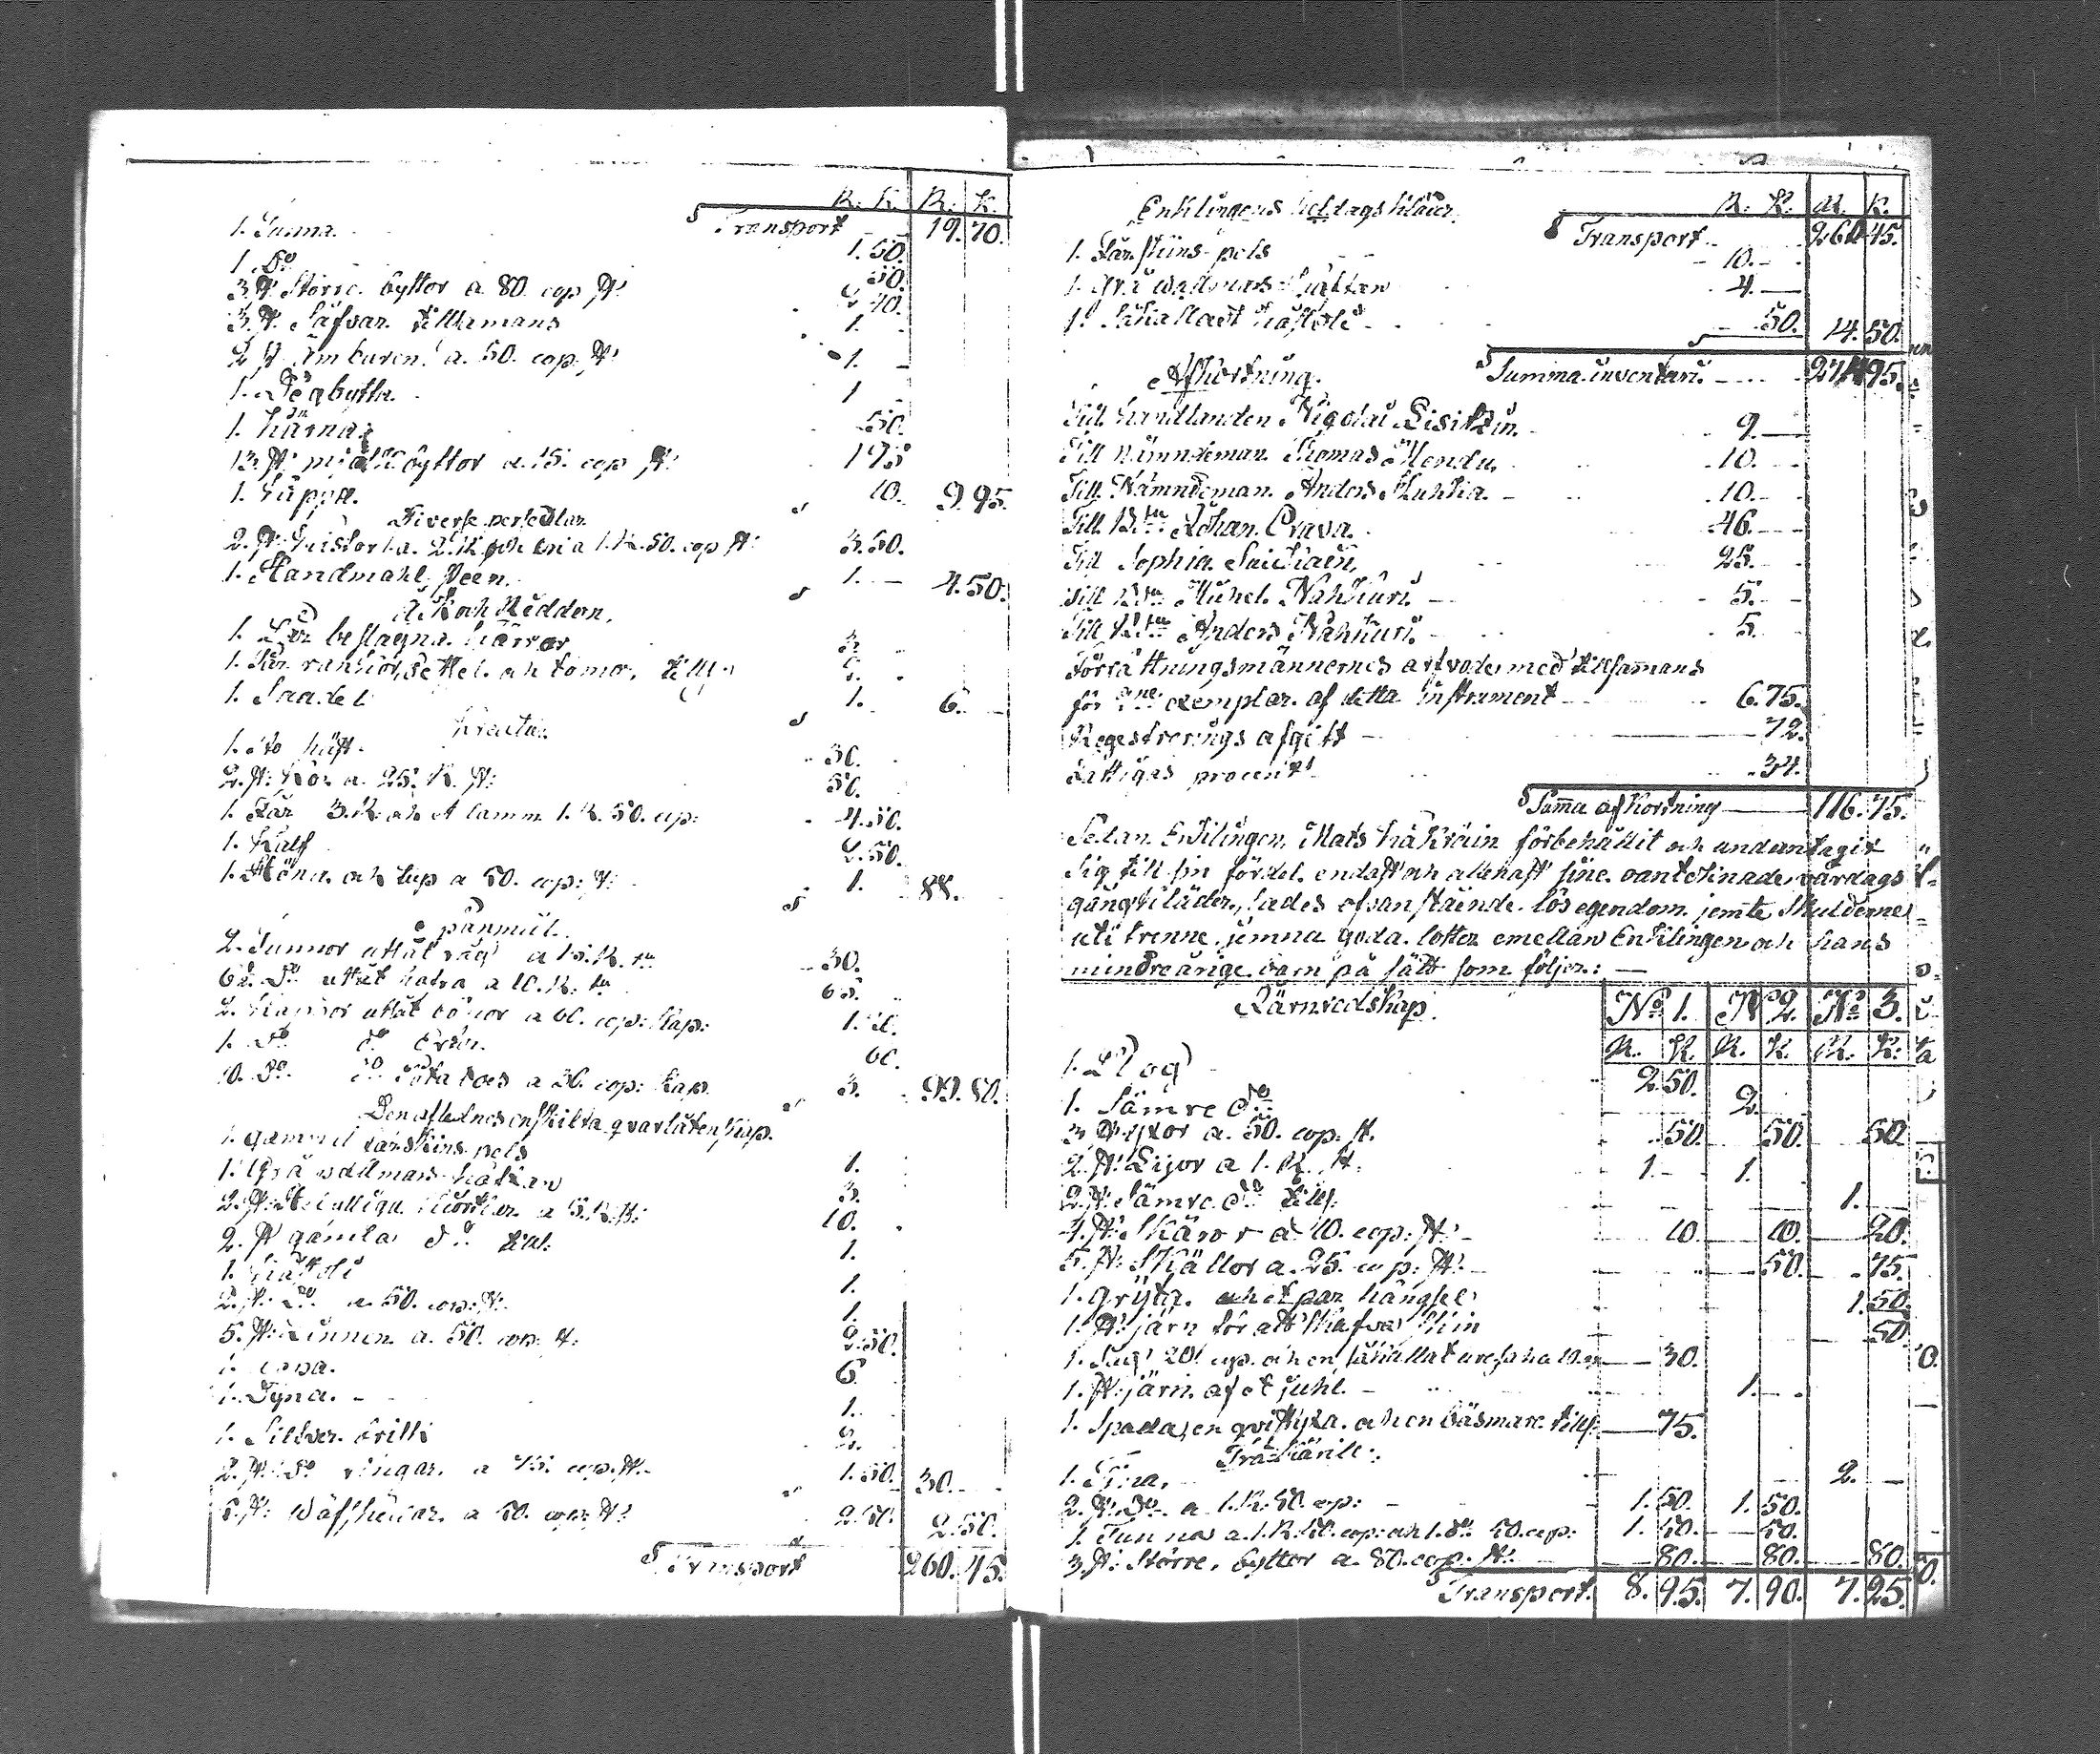 R. K. R. K.
Transport 19. 70.
1. Tunna 1.50.
1. Do 50.
3 st. Större byttor a 80. cop st. 2 40.
3. st. Säfvar tillhamans 1.
2 st Ämbaren a. 50. cop. st. 1.
1. Degbytta. 1
1. Kärna 50.
13. st. miölkbyttor a. 15. cop st. 195
1. 10. 9 95.
Diverse persedlar
2. st. a. 2. R. och en a 1. R. 50. cop st. 3.50.
1. Handmahl Steen. 1. 4.50.
Åk och Redden.
1. Par beslagna kärror 3.
1. Par rankior, settel och tömor, till. 2.
1. Saadel 1. 6.
Kreatur
1. sto häst 30.
2. st. Kor a. 25. R. st. 50.
1. Får 3. R. och et lamm 1. R. 50. cop: 4.50.
1. Kalf 2.50.
1. Höna och tup a 50. cop: st. 1. 88.
Spanmål.
2. Tunnor uttåt råg a 15. R. tn 30.
6½. Do uttåt hafra a 10. R. tn 65.
2. Kappor uttåt bönor a 60. cop: Kap: 1.20.
1. Do do Ärter. 60.
10. Do. do Potatoes a 30. cop: Kap. 3. 99.80.
Den aflednes enskilta qvarlåtenskap.
1. gammal fårskins pels 1.
1. Grå valmars kaftan 3.
2. st. a 5. R. st. 10.
2. st gamla do till: 1.
1. 1.
2. st. Do a. 50. cop: st. 1.
5. st. Linnen a. 50. cop: st: 2.50.
1. 6
1. Dyna. 1.
1. Silfver brisk 2.
2. st. Do ringar a 75. cop. st. 1.50. 30.
5. st. Wäfskedar a 50. cop: st. 2.50. 2.50.
Transport 260. 45.
Enklingens helgdags kläder. R. K. R. K.
Transport 260 45.
1. Fårskins pels 10.
1. Grå wadmars kaftan 4.
1. 50. 14. 50.
Summa inventarii. 274 95.
Afkortning.
Till handlanden Nigolai Lisitzin. 9.
Till nämndeman Thomas Mendu 10.
Till Nämndeman Anders Kuhsia. 10.
Till Bdn Johan Orava. 46.
Till Sophia 25.
Till Bdn Michel Nahkuri 5.
Till Bdn Anders Nahkuri. 5
Förrättningsmännernes arfvode med tillsamans
för exemplar af detta instrument 6.75.
Regestrerings afgift 72.
Fattigas procent 34.
Summa afkortning 116. 75.
Sedan Enklingen Mats förbehållit och undantagit
sig till sin fördel endast och allenast sine oantecknade vardags
gångkläder, lades ofvanstående lösegendom jemte skulderne
uti trenne jemna goda lotter emellan Enklingen och hans
mindreårige barn på sätt som följer:
Järnredskap. No 1. No 2. No 3.
R. K. R. K. R. K:
1. Plog 2 50.
1. Sämre do 2.
3 st Yxor a. 50. cop. st. 50. 50. 50
2. st. Lijor a 1. R. st. 1. 1.
2. st. Sämre do till: 1.
4. st. Skäror a 10. cop: st. 10. 10. 20.
5. st: Skällor a. 25. cop: st. 50. 75.
1. Gryta och et par hängsel 1. 50.
1. st. järn för att skafva skin 50
1. Sug 20. cop. och en 10. 30.
1. st. järn af et juhl. 1.
1. Spada, en qvistyxa och en bäsmare till: 75.
Träkärill:
1. Tina. 2.
2. st. Do a 1. R. 50. cop: 1. 50. 1. 50.
1. Tunna a. 1. R. 50. cop: och 1. do 50. cop: 1. 50. 50.
3. st. Större byttor a. 80. cop. st. 80. 80. 80.
Transport. 8. 95. 7. 90. 7. 25.